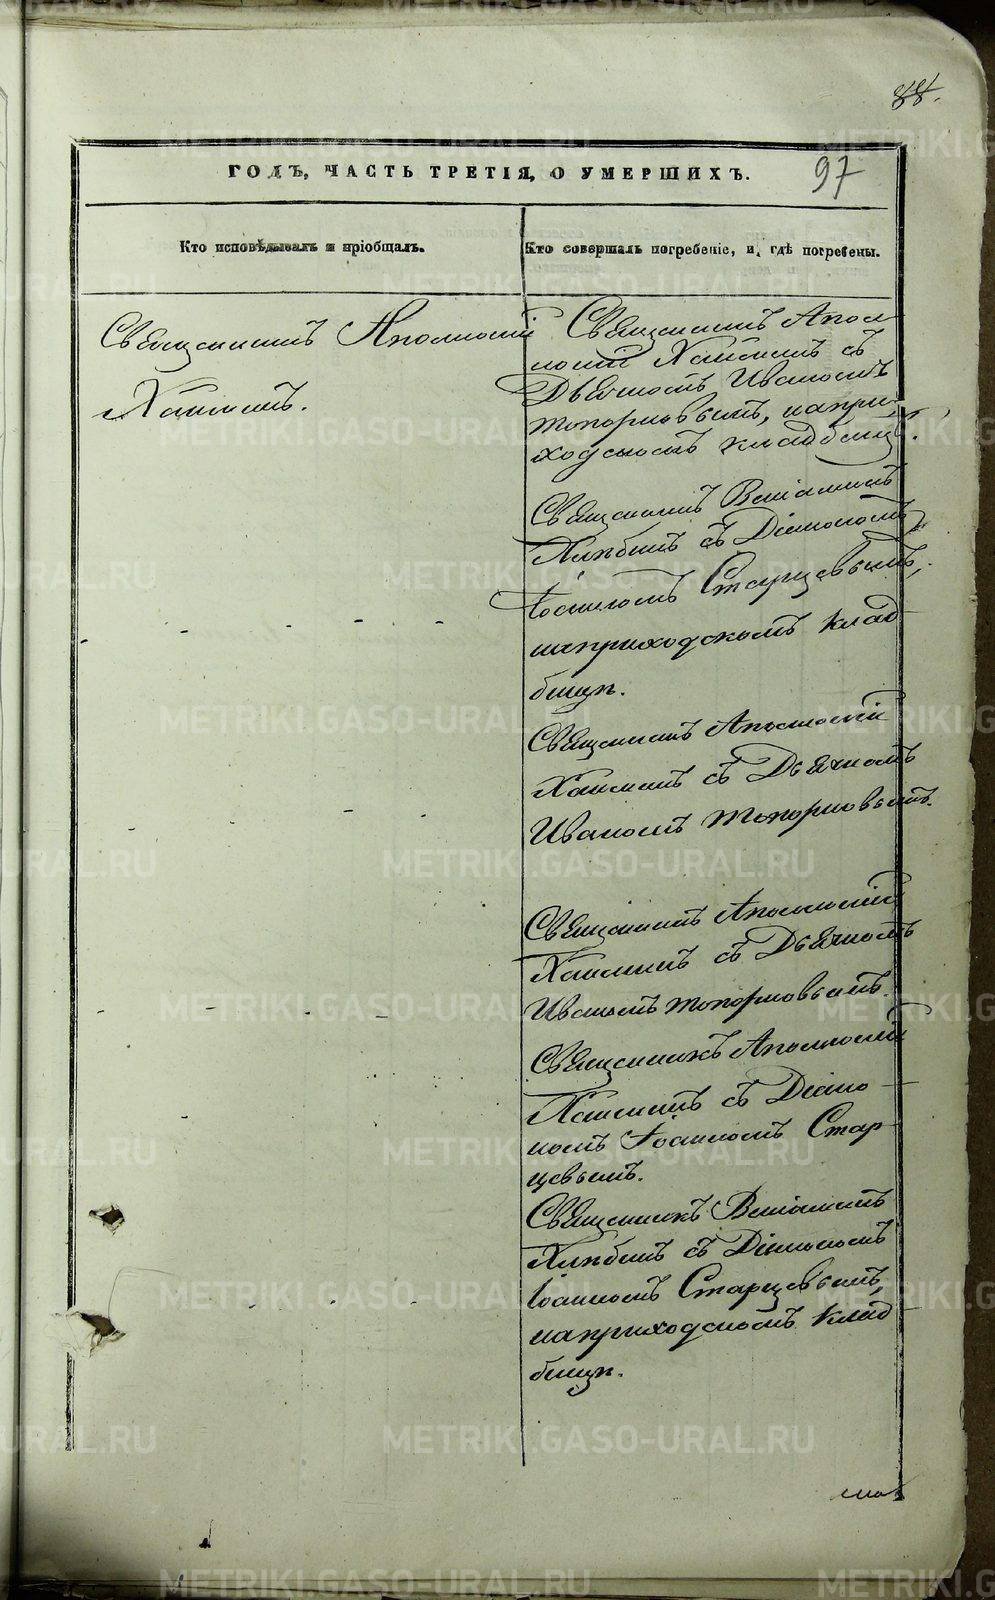 88.
97
ГОДЪ, ЧАСТЬ ТРЕТІЯ, О УМЕРШИХЪ.
Кто исповѣдывалъ и пріобщалъ.
Кто совершалъ погребеніе, и гдѣ погребены.
Священникъ Аполлоній
Священникъ Апол
лоній съ
Дьячкомъ Иваномъ
Топорковымъ, на при-
ходскомъ кладбищѣ.
Священникъ Веніаминъ
Хлѣбинъ съ Діакономъ
Іоанномъ Старцевымъ,
на приходскомъ клад
бищѣ.
Священникъ Аполлоній
съ Дьячкомъ
Иваномъ Топорковымъ.
Священникъ Аполлоній
съ Дьячкомъ
Иваномъ Топорковымъ.
Священникъ Аполлоній
съ Діако-
номъ Іоанномъ Стар-
цевымъ.
Священникъ Веніаминъ
Хлѣбинъ съ Діакономъ
Іоанномъ Старцевымъ,
на приходскомъ клад
бищѣ.
METRIKI.GASO-URAL.RU